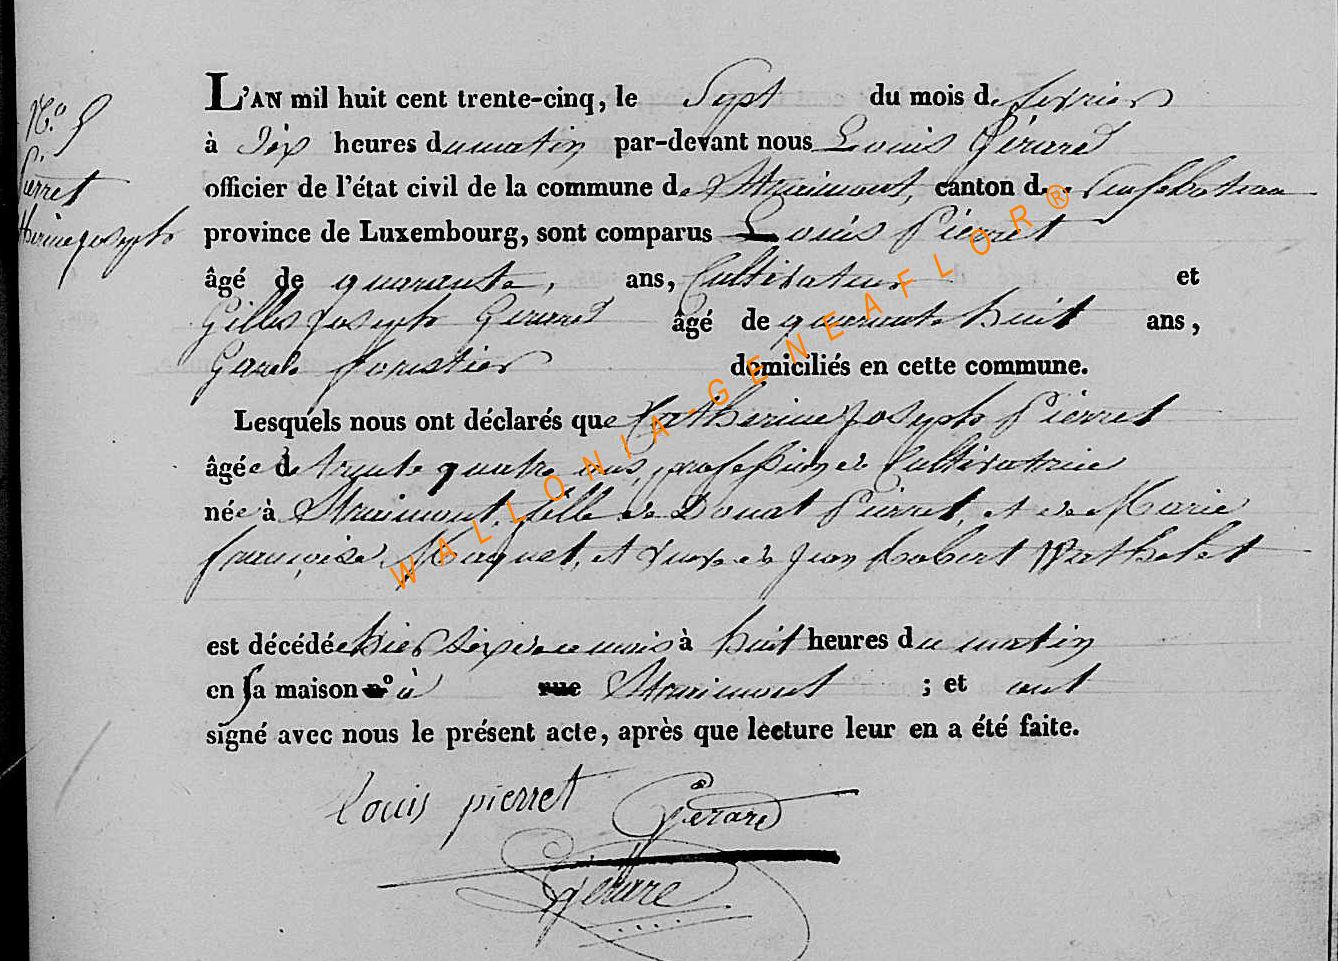 N.o 5
Pierret
therine joseph
L'AN mil huit cent trente-cinq, le Sept du mois de fevrier
à Dix heures du matin par-devant nous Louis Gérard
officier de l'état civil de la commune de Straimont, canton de Neufchateau
province de Luxembourg, sont comparus Louis Pierret
âgé de quarante, ans, Cultivateur et
Gilles Joseph Gerard âgé de quarante huit ans,
Garde forestier domiciliés en cette commune.
Lesquels nous ont déclarés que Catherine Joseph Pierret
âgée de trente quatre ans, profession de Cultivatrice
née à Straimont, fille de Donat Pierret, et de Marie
françoise Maquet, et veuve de Jean Robert Wathelet
est décédée hier Six de ce mois à huit heures du matin
en sa maison n° à rue Straimont ; et ont
signé avec nous le présent acte, après que lecture leur en a été faite.
louis pierret Gerard
Gérard
WALLONIA-GENEAFLOR®